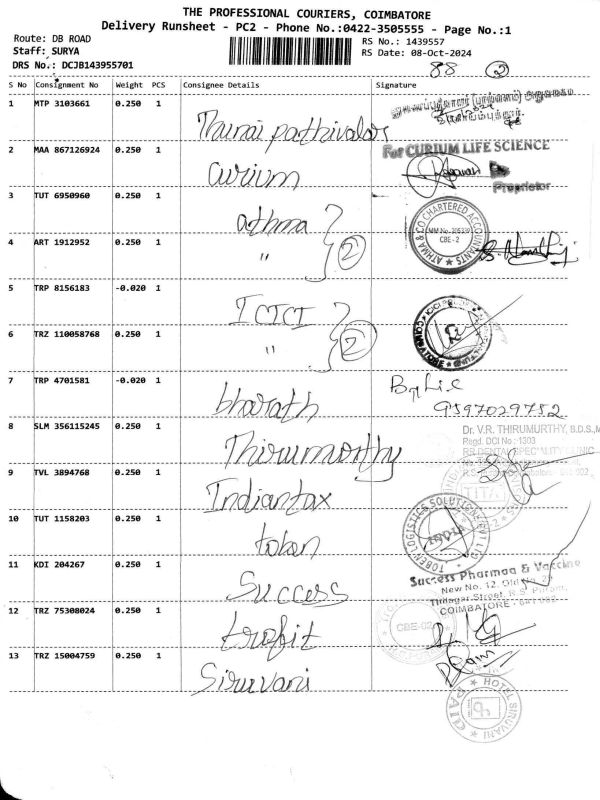 THE PROFESSIONAL COURIERS, COIMBATORE
Delivery Runsheet - PC2 - Phone No.:0422-3505555 - Page No.:1
Route: DB ROAD
RS No.: 1439557
Staff: SURYA
RS Date: 08-Oct-2024
DRS No.: DCJB143955701
88 2
S No Consignment No Weight PCS Consignee Details Signature
1 MTP 3103661 0.250 1
2 MAA 867126924 0.250 1 Curium
For CURIUM LIFE SCIENCE
Proprietor
3 TUT 6950960 0.250 1 athma
ATHMA & CO CHARTERED ACCOUNTANTS
CBE - 2
4 ART 1912952 0.250 1 " 2
5 TRP 8156183 -0.020 1 ICICI
6 TRZ 110058768 0.250 1 " 2
COIMBATORE
7 TRP 4701581 -0.020 1 bharath
9597029752
8 SLM 356115245 0.250 1 Thirumorthy
Dr. V.R. THIRUMURTHY, B.D.S.,M
Regd. DCI No.: 1303
RR DENTAL SPECIALITY CLINIC
9 TVL 3894768 0.250 1 Indiantax
10 TUT 1158203 0.250 1 toben
TOBEN LOGISTICS SOLUTIONS PVT LTD
INDIA
11 KDI 204267 0.250 1 Success
Success Pharmaa & Vaccine
New No. 12, Old No. 2
Thilagar Street, R.S. Puram,
COIMBATORE - 641 002
12 TRZ 75308024 0.250 1
CBE-02
13 TRZ 15004759 0.250 1 Siruvani
HOTEL SIRUVANI